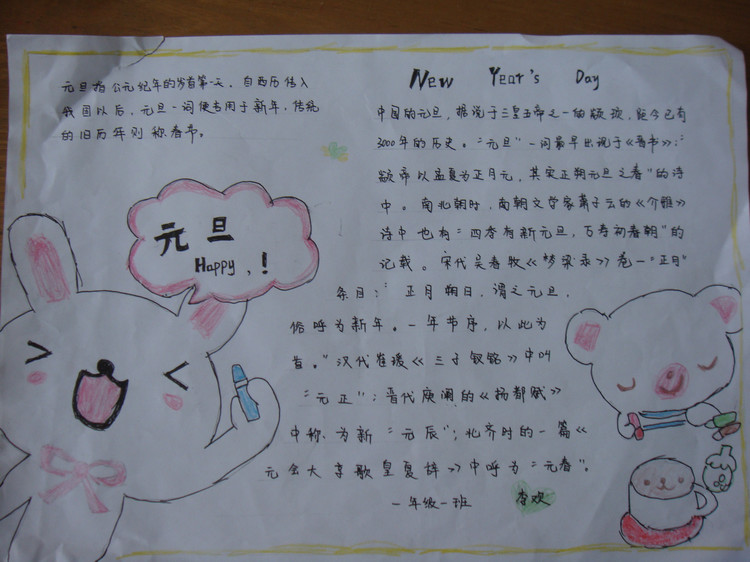 元旦指公元纪年的岁首第一天。自西历传入
我国以后，元旦一词便专用于新年，传统
的旧历年则称春节。
元旦
Happy，！
New Year's Day
中国的元旦，据说于三皇五帝之一的颛顼，距今已有
3000年的历史。“元旦”一词最早出现于《晋书》：“
颛帝以孟夏为正月元，其实正朔元旦之春”的诗
中。南北朝时，南朝文学家萧子云的《介雅》
诗中也有“四季有新元旦，万寿初春朝”的
记载。宋代吴春牧《梦梁录》卷一“正月”
条目：“正月朔日，谓之元旦，
俗呼为新年。一年节序，以此为
首。”汉代崔瑗《三子钗铭》中叫
“元正”；晋代庾阐的《扬都赋》
中称为新“元辰”；北齐时的一篇《
元会大享歌皇夏辞》中呼为“元春”。
一年级一班 李欢